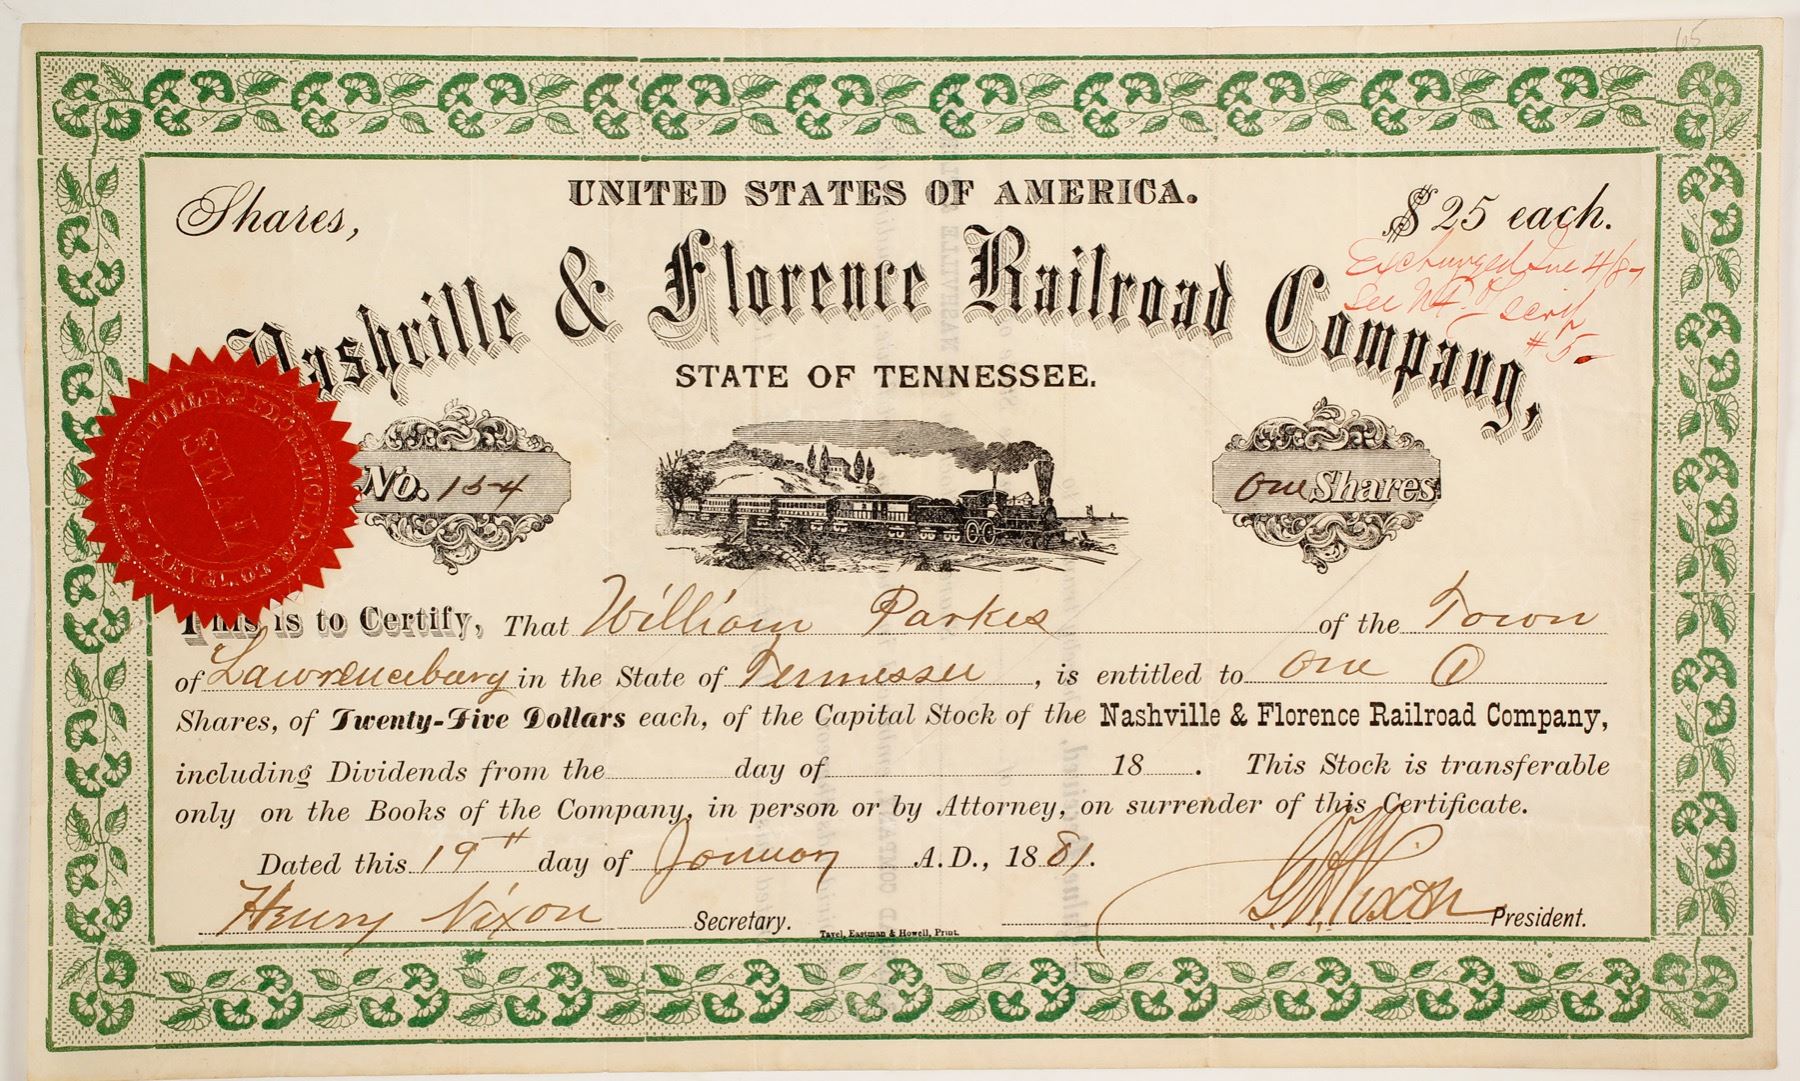 65
UNITED STATES OF AMERICA.
Shares,
$25 each.
Nashville & Florence Railroad Company,
Exchanged
See
scrip
#5-
STATE OF TENNESSEE.
NASHVILLE & FLORENCE R.R. COMPANY
SEAL
No. 154
One Shares
This is to Certify, That William Parkes of the Town
of Lawrenceburg in the State of Tennessee, is entitled to One (1)
Shares, of Twenty-Five Dollars each, of the Capital Stock of the Nashville & Florence Railroad Company,
including Dividends from the day of 18 . This Stock is transferable
only on the Books of the Company, in person or by Attorney, on surrender of this Certificate.
Dated this 19th day of January A.D., 1881.
Henry Nixon Secretary.
Nixon President.
Tavel, Eastman & Howell, Print.